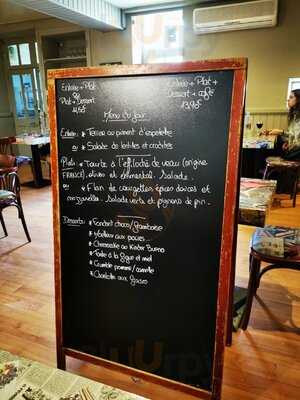 Entrée + Plat
ou
Plat + Dessert
Entrée + Plat +
Dessert + café
Menu du jour
Entrées * Terrine au piment d'espelette
ou * Salade de lentilles et crudités
Plats * Tourte à l'effiloché de veau (origine
FRANCE), olives et emmental. Salade.
ou * Flan de courgettes épices douces et
mozzarella. Salade verte et pignons de pin.
Desserts * Fondant choco/framboise
* Moelleux aux poires
* Cheesecake au Kinder Bueno
* Tarte à la figue et miel
* Crumble pomme/
* Charlotte aux